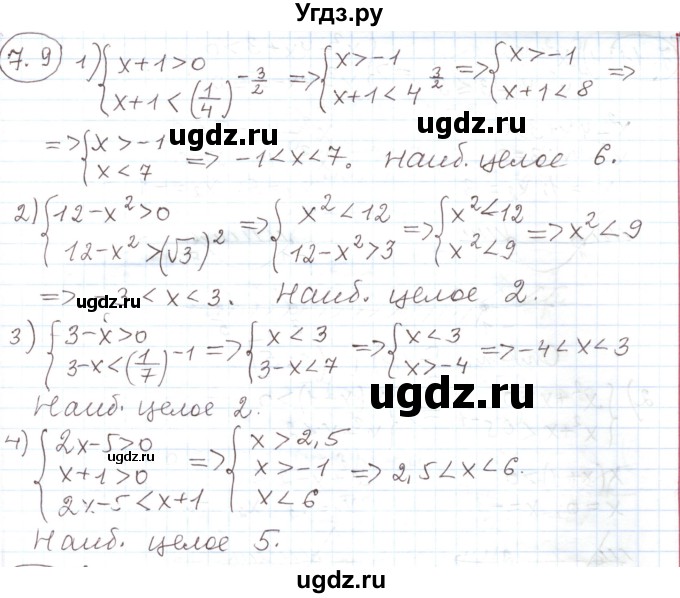 Угдз.ру
7.9 1) { x+1>0 ; x+1<(1/4)^(-3/2) => { x>-1 ; x+1<4^(3/2) => { x>-1 ; x+1<8 =>
ugdz.ru
ugdz.ru
=> { x>-1 ; x<7 => -1<x<7. Наиб. целое 6.
2) { 12-x²>0 ; 12-x²>(√3)² => { x²<12 ; 12-x²>3 => { x²<12 ; x²<9 => x²<9
=> -3<x<3. Наиб. целое 2.
ugdz.ru
3) { 3-x>0 ; 3-x<(1/7)^-1 => { x<3 ; 3-x<7 => { x<3 ; x>-4 => -4<x<3
ugdz.ru
Наиб. целое 2.
4) { 2x-5>0 ; x+1>0 ; 2x-5<x+1 => { x>2,5 ; x>-1 ; x<6 => 2,5<x<6.
ugdz.ru
Наиб. целое 5.
ugdz.ru
ugdz.ru